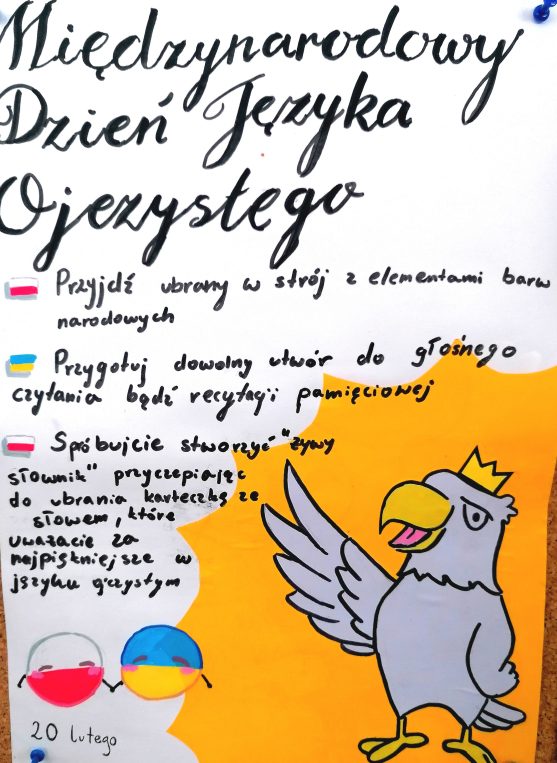 Międzynarodowy
Dzień Języka
Ojczystego
Przyjdź ubrany w strój z elementami barw
narodowych
Przygotuj dowolny utwór do głośnego
czytania bądź recytacji pamięciowej
Spróbujcie stworzyć "żywy
słownik" przyczepiając
do ubrania karteczkę ze
słowem, które
uważacie za
najpiękniejsze w
języku ojczystym
20 lutego